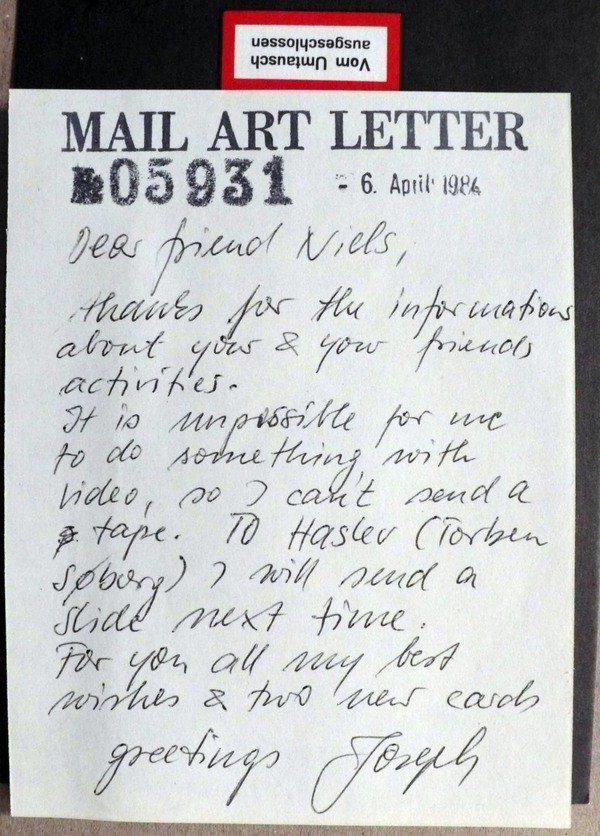 Vom Umtausch
ausgeschlossen
MAIL ART LETTER
№05931 - 6. April 1984
Dear friend Niels,
thanks for the informations
about your & your friends
activities.
It is impossible for me
to do something with
video, so I can't send a
tape. TO Haslev (Torben
Søborg) I will send a
slide next time.
For you all my best
wishes & two new cards
greetings Joseph